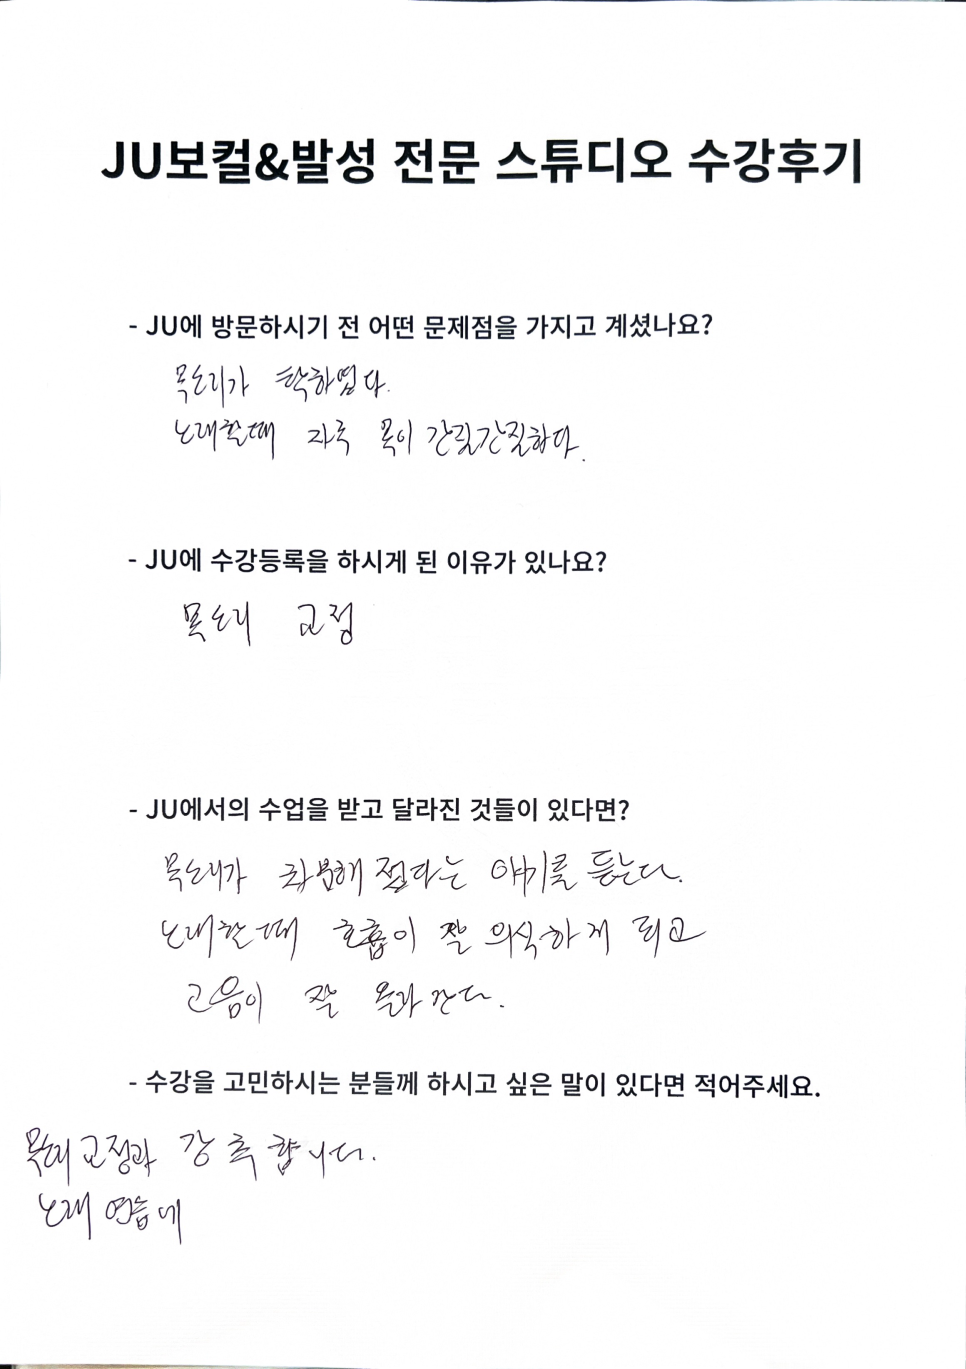 JU보컬&발성 전문 스튜디오 수강후기
- JU에 방문하시기 전 어떤 문제점을 가지고 계셨나요?
목소리가 탁하였다.
노래할때 자주 목이 간질간질하다.
- JU에 수강등록을 하시게 된 이유가 있나요?
목소리 교정
- JU에서의 수업을 받고 달라진 것들이 있다면?
목소리가 차분해 졌다는 얘기를 듣는다.
노래할때 호흡이 잘 의식하게 되고
고음이 잘 올라간다.
- 수강을 고민하시는 분들께 하시고 싶은 말이 있다면 적어주세요.
목소리 교정과 강추합니다.
노래 연습에